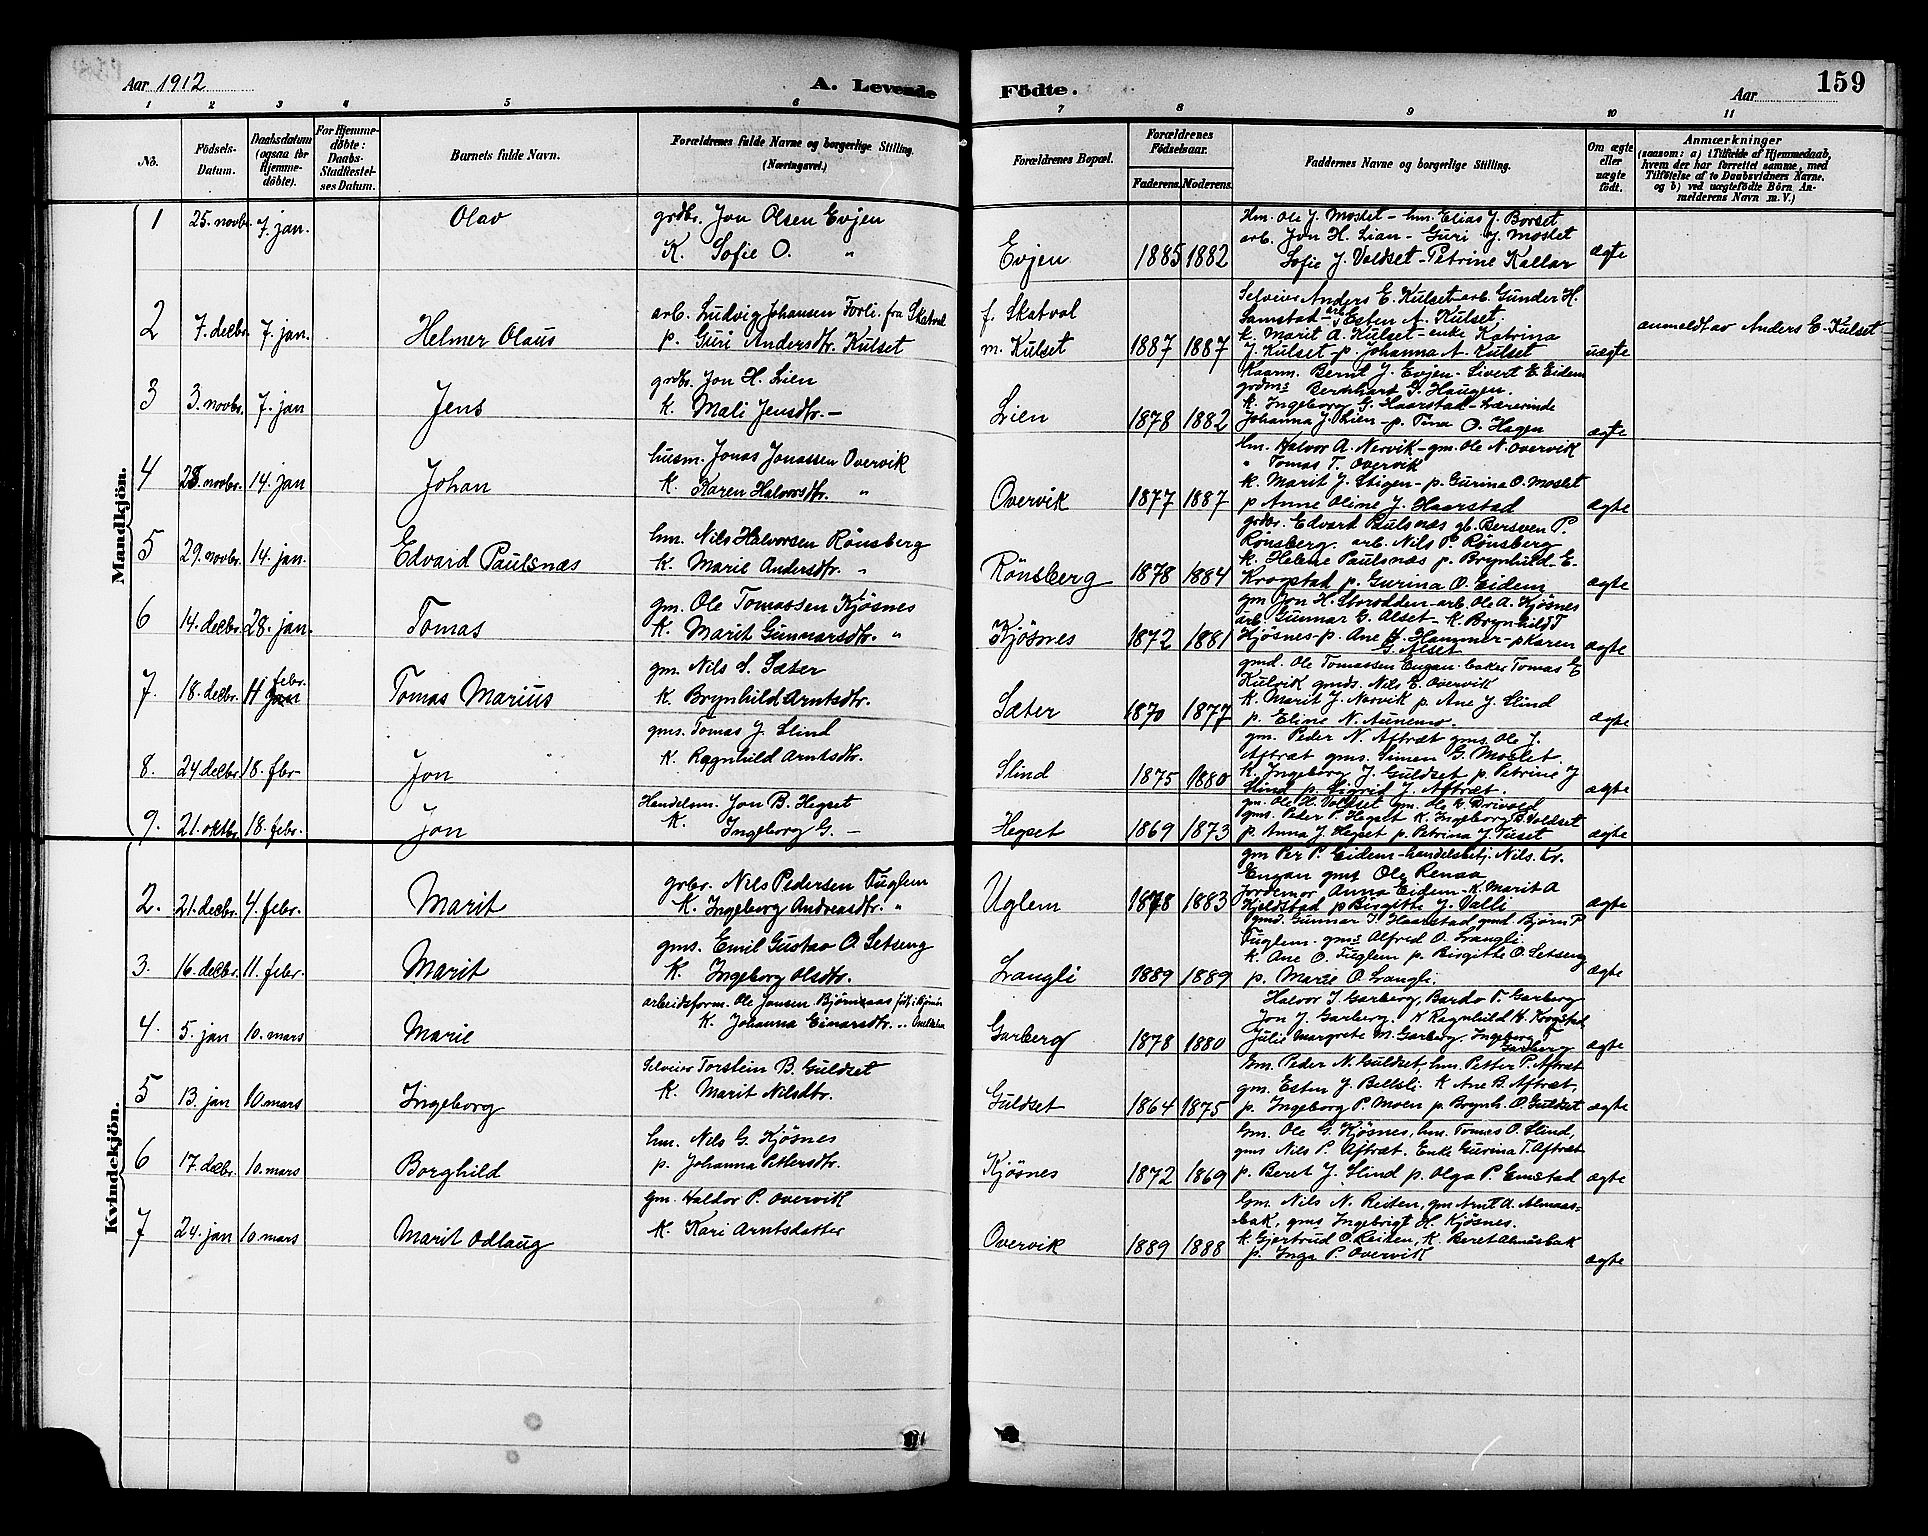 Aar 1912
A. Levende Födte.
Aar
159
1 2 3 4 5 6 7 8 9 10 11
No.
Födsels-
Datum.
Daabsdatum
(ogsaa for
Hjemme-
döbte).
For Hjemme-
döbte:
Daabs-
Stadfæstel-
ses Datum.
Barnets fulde Navn.
Forældrenes fulde Navne og borgerlige Stilling.
(Næringsvei.)
Forældrenes Bopæl.
Forældrenes
Födselsaar.
Faderens. Moderens.
Faddernes Navne og borgerlige Stilling.
Om ægte
eller
uægte
födt.
Anmærkninger
(saasom: a) i Tilfælde af Hjemmedaab,
hvem der har forrettet samme, med
Tilföielse af to Daabsvidners Navne,
og b) ved uægtefödte Börn An-
melderens Navn m. V.)
Mandkjön.
1 25. novbr. 7. jan. Olav
grdbr. Jon Olsen Evjen
K. Sofie O. "
Evjen 1885 1882
Hm. Ole J. Moslet - hm. Elias J. Borset
arb. Jon H. Lian - Guri J. Moslet
Sofie J. Voldset - Petrine Kallar
ægte
2 7. decbr. 7. jan. Helmer Olaus
arb. Ludvig Johansen Forli. fra Skatval
p. Guri Andersdtr. Kulset
f. Skatval
m. Kulset 1887 1887
Selveier Anders E. Kulset - arb. Gunder H.
Samstad - arb. Esten A. Kulset.
k. Marit A. Kulset - enke Katrina
J. Kulset - p. Johanna A. Kulset
uægte
anmeldt av Anders E. Kulset
3 3. novbr. 7. jan Jens
grdbr. Jon H. Lien
k. Mali Jensdtr. -
Lien 1878 1882
Kaarm. Bernt J. Evjen - Sivert E. Eidem
grdms Bernhard G. Haugen.
k. Ingeborg G. Haarstad - Lærerinde
Johanna J. Lien - p. Tina O. Hagen
ægte
4 25. novbr. 14. jan Johan
husm. Jonas Jonassen Overvik
K. Karen Halvorsdtr. "
Overvik 1877 1887
hm. Halvor A. Nervik - gm. Ole N. Overvik
" Tomas T. Overvik
k. Marit J. Stigen - p. Gurina O. Moslet
p Anne Oline J. Haarstad
ægte
5 29. novbr. 14. jan. Edvard Paulsnæs
hm. Nils Halvorsen Rönsberg
K. Marie Andersdtr. "
Rönsberg 1878 1884
grdbr. Edvard Paulsnæs gb. Bersven P.
Rönsberg. arb. Nils P. Rönsberg
k. Helene Paulsnæs p. Brynhild E.
Krogstad p. Gurina O. Eidem
ægte
6 14. decbr. 28. jan. Tomas
gm. Ole Tomassen Kjösnes
K. Marit Gunnarsdtr. "
Kjösnes 1872 1881
gm Jon H. Storodden - arb. Ole A. Kjösnes
arb. Gunnar G. Alset - K. Brynhild T
Kjösnes - p. Ane H. Hammer - p Karen
G. Alset
ægte
7. 18. decbr. 11 jan febr. Tomas Marius
gm. Nils S. Sæter
K. Brynhild Arntsdtr.
Sæter 1870 1877
gmd. Ole Tomassen Engan. baker Tomas E
Kulvik gmds. Nils E. Overvik
k. Marit J. Nervik p. Ane J. Slind
p. Eline N. Aunemo.
ægte
8. 24 decbr. 18. febr Jon
gms. Tomas J. Slind
K. Ragnhild Arntsdtr.
Slind 1875 1880
gm. Peder N. Aftræt gms. Ole J.
Aftræt gms. Simen G. Moslet
K. Ingeborg J. Guldset p. Petrine J
Slind p. Sigrid J. Aftræt.
ægte
9. 21. oktbr. 18. febr. Jon
Handelsm. Jon B. Hegset
K. Ingeborg G. -
Hegset 1869 1873
gm. Ole H. Voldset gm. Ole K. Drivold
gms. Peder P. Hegset K. Ingeborg B. Voldset
p. Anna J. Hegset p. Petrina J. Tuset
ægte
Kvindekjön.
2. 21. decbr. 4. febr. Marit
grbr. Nils Pedersen Fuglem
K. Ingeborg Andreasdtr. "
Uglem 1878 1883
gm Per P. Eidem - handelsbetj. Nils Kr.
Engan gms Ole Renaa
Jordemor Anna Eidem - K. Marit A
Kjeldstad p Birgitte J. Valli
ægte
3. 16. decbr. 11. febr. Marit
gms. Emil Gustav O. Setseng
K. Ingeborg Olsdtr.
Langli 1889 1889
gmd. Gunnar J. Haarstad gmd. Björn P
Fuglem. gms Alfred O. Langli.
K. Ane O. Fuglem p. Birgitte O. Setseng
p. Marie O. Langli.
ægte
4. 5. jan 10. mars Marie
arbeidsform. Ole Jonsen Björnaas
K. Johanna Einarsdtr. "
Garberg 1878 1880
Halvor J. Garberg, Bardo T. Garberg
Jon J. Garberg. K Ragnhild H. Krogstad
Julie Margrete M. Garberg. Ingeborg T
Garberg
ægte
5 13. jan 10. mars Ingeborg
Selveier Torstein B. Guldset
K. Marit Nilsdtr.
Guldset 1864 1875
Gm. Peder N. Guldset, hm. Petter P. Aftræt
gm. Esten J. Bellsli. K Ane B. Aftræt,
p. Ingeborg P. Moen p. Brynh. O. Guldset
ægte
6 17. decbr. 10. mars Borghild
hm. Nils G. Kjösnes
p. Johanna Pettersdtr.
Kjösnes 1872 1869
Gm. Ole G. Kjösnes, hm. Tomas O. Slind,
gms Nils P. Aftræt. Enke Gurina T. Aftræt
p. Beret J. Slind p. Olga P. Emstad
ægte
7 24. jan 10 mars Marit Odlaug
gm. Haldor P. Overvik
K. Kari Arntsdatter
Overvik 1889 1888
Gm. Nils N. Reiten, gm Arnt A. Almaas-
bak, gms Ingebrigt H. Kjösnes.
K. Gjertrud O. Reiten, K. Beret Almåsbak
p. Inga P. Overvik
ægte